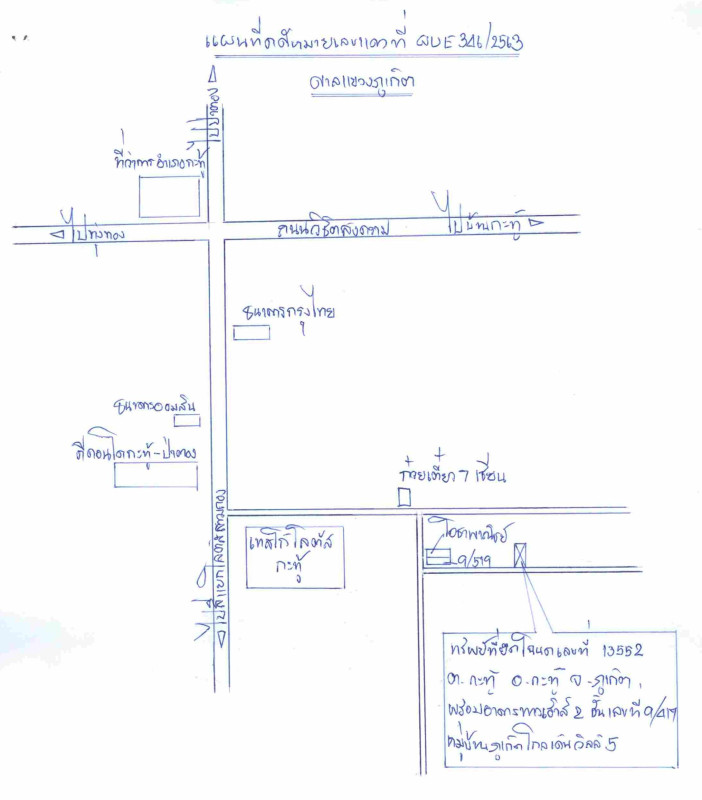 แผนที่คดีหมายเลขแดงที่ ผบE 346/2563
ศาลแขวงภูเก็ต
ไปป่าตอง
ที่ว่าการอำเภอกะทู้
ไปทุ่งทอง
ถนนวิชิตสงคราม
ไปบ้านกะทู้
ธนาคารกรุงไทย
ธนาคารออมสิน
ดีคอนโดกะทู้-ป่าตอง
ก๋วยเตี๋ยว 7 เซียน
ไปสี่แยกโลตัสสามกอง
เทสโก้ โลตัส
กะทู้
โอชาพาณิชย์
9/519
ทรัพย์ที่ยึด โฉนดเลขที่ 13552
ต.กะทู้ อ.กะทู้ จ.ภูเก็ต
พร้อมอาคารทาวเฮ้าส์ 2 ชั้น เลขที่ 9/419
หมู่บ้านภูเก็ตโกลเด้นวิลล์ 5